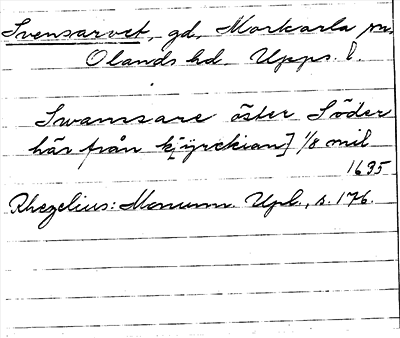 Svensarvet, gd, Morkarla sn,
Olands hd. Upps. l.
Swanssare öster Söder
här från k[ÿrckian] 1/8 mil
1635
Rhezelius: Monum. Upl., s. 176.